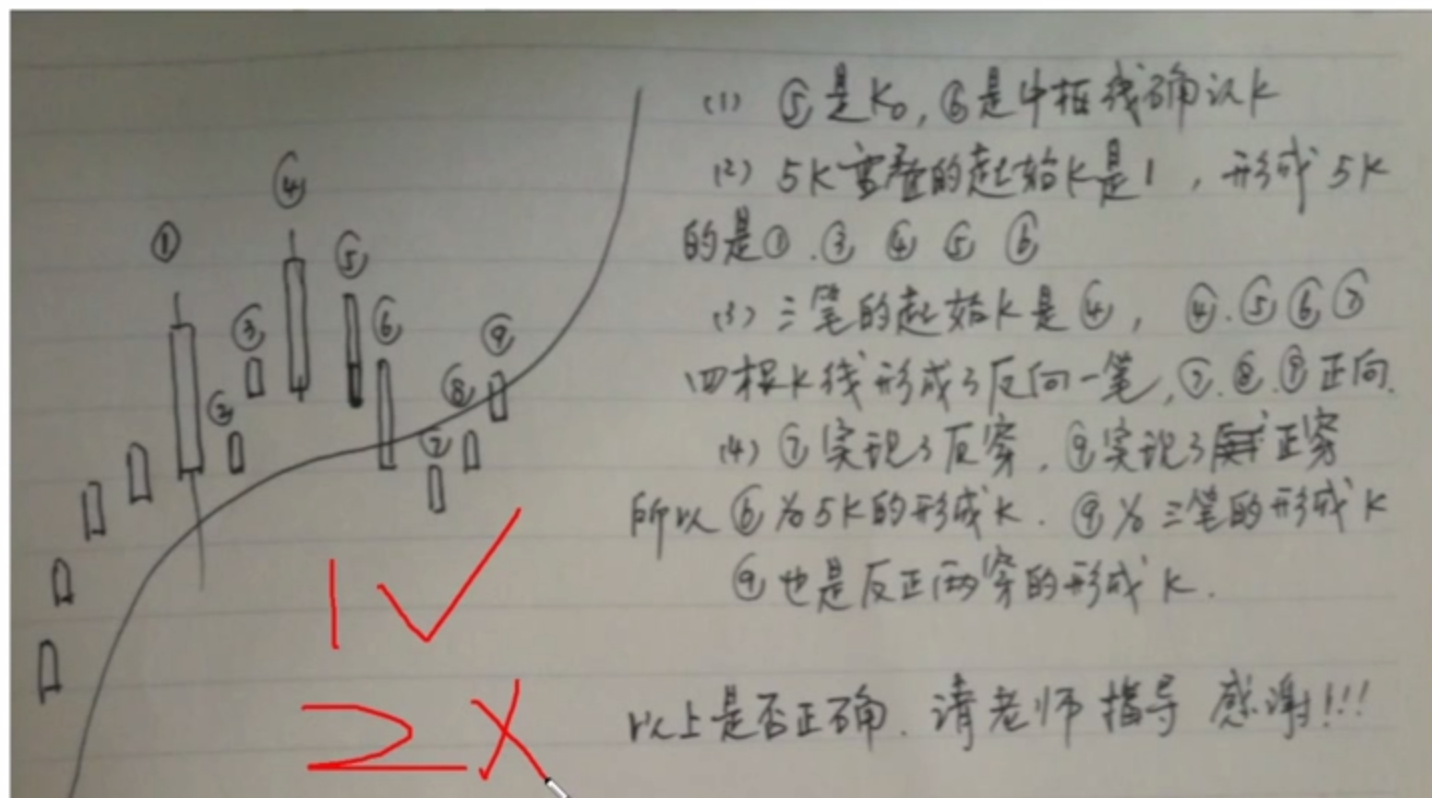 (1) ⑤是K₀,⑥是中枢线确认K
(2) 5K重叠的起始K是1,形成5K
的是①.③ ④ ⑤ ⑥
(3) 三笔的起始K是④, ④.⑤⑥⑦
四根K线形成了反向一笔,⑦.⑧.⑨正向.
(4) ⑦实现了反穿,⑨实现了正穿
所以⑥为5K的形成K. ⑨为三笔的形成K
⑨也是反正两穿的形成K.
以上是否正确.请老师指导 感谢!!!
④
①
⑤
③
⑥
⑨
②
⑧
⑦
1√
2×